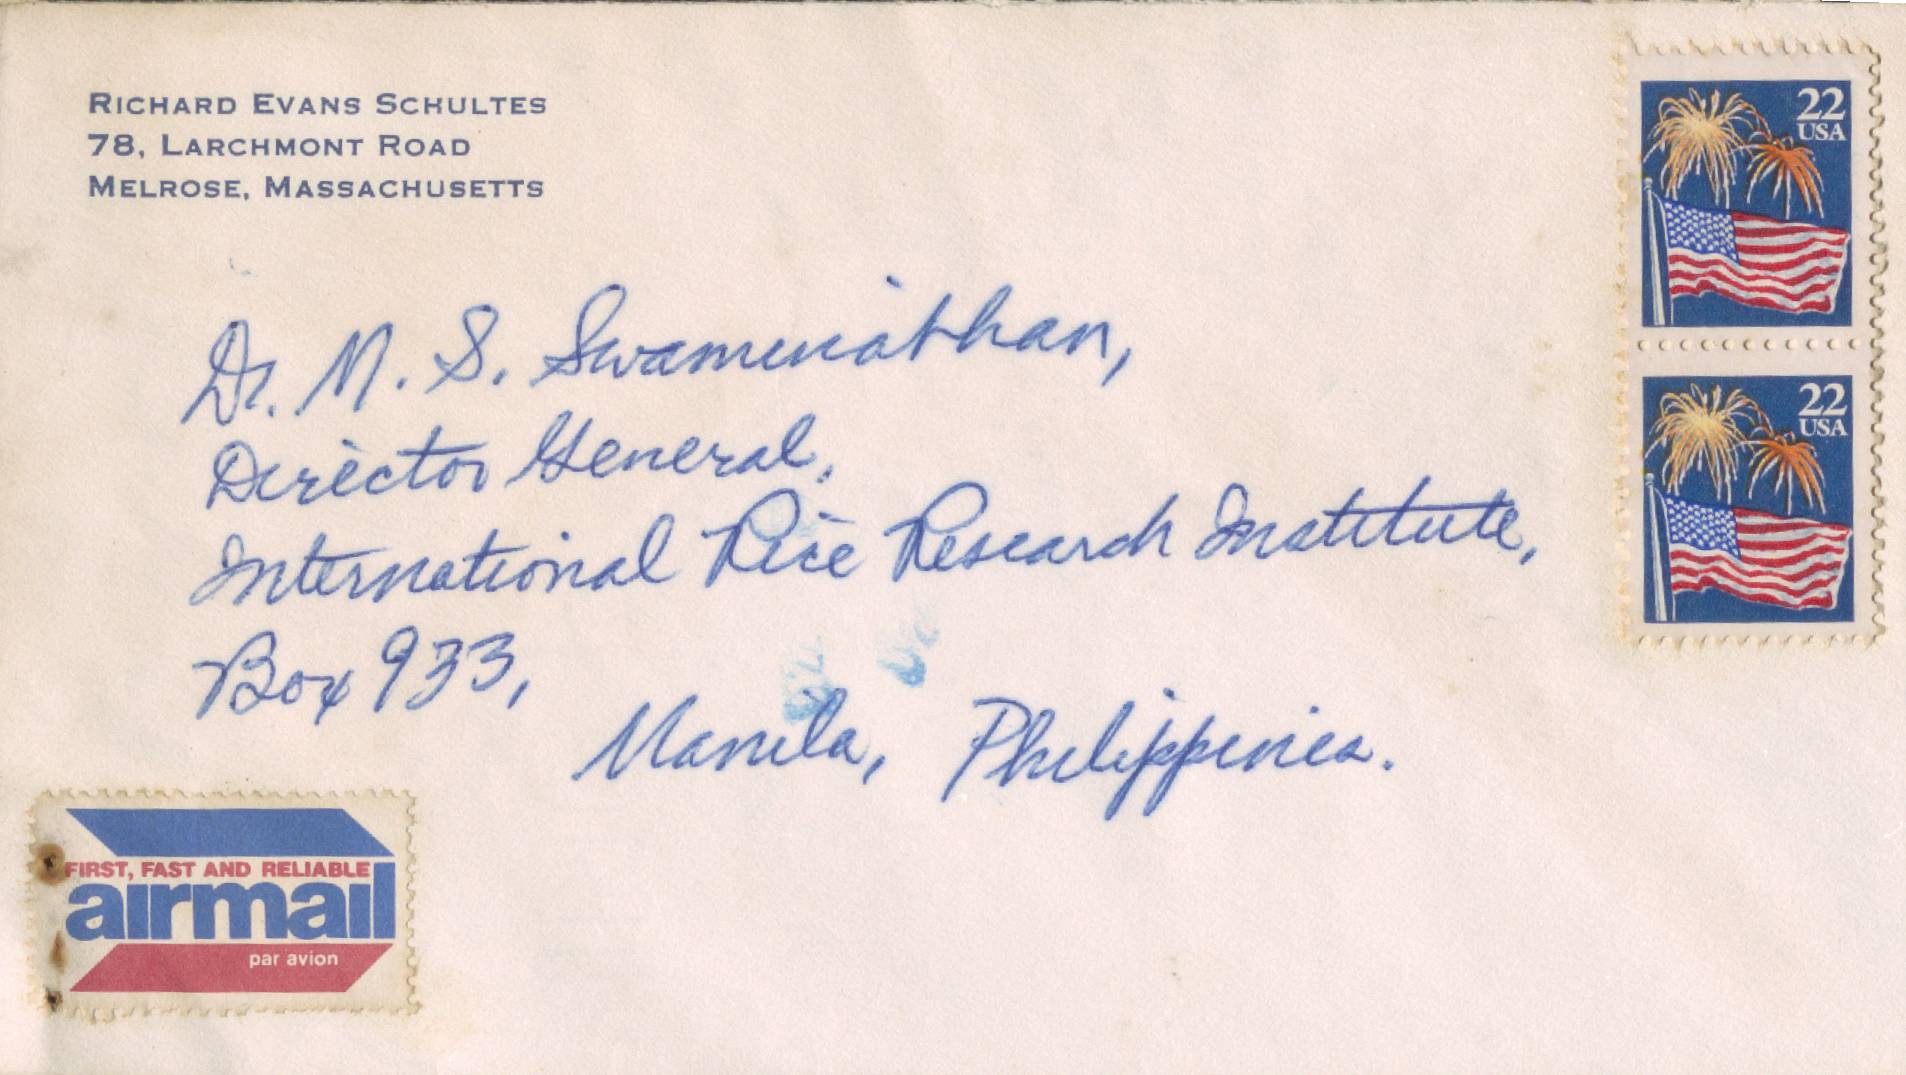 RICHARD EVANS SCHULTES
78, LARCHMONT ROAD
MELROSE, MASSACHUSETTS
22
USA
22
USA
Dr. M. S. Swaminathan,
Director General,
International Rice Research Institute,
Box 933,
Manila, Philippines.
FIRST, FAST AND RELIABLE
airmail
par avion